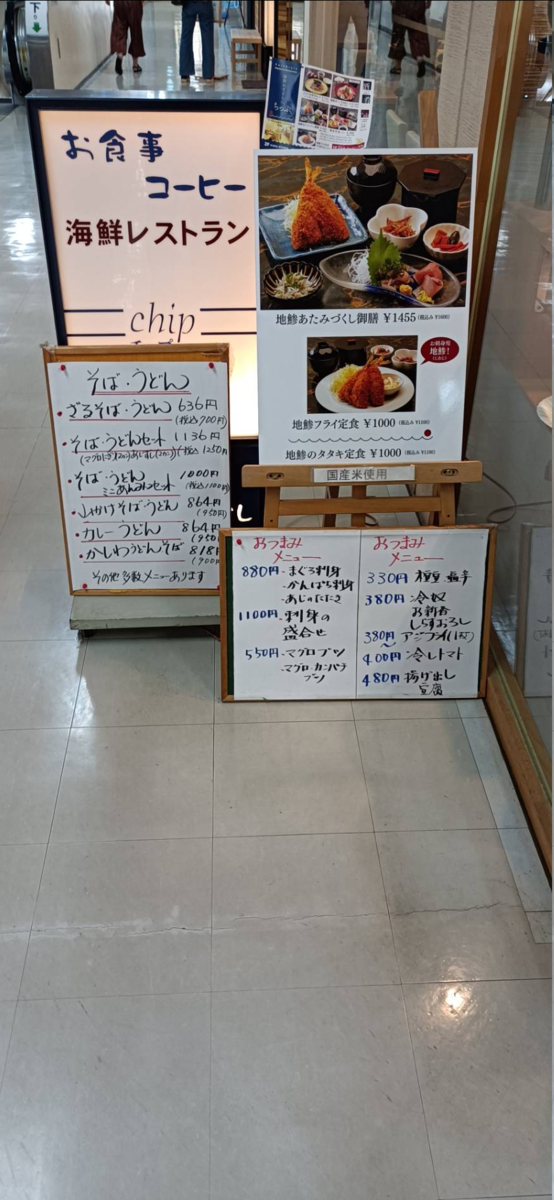 下り
お食事
コーヒー
海鮮レストラン
chip
地鯵あたみづくし御膳 ¥1455(税込み¥1600)
お刺身用
地鯵!
地鯵フライ定食 ¥1000(税込み¥1100)
地鯵のタタキ定食 ¥1000(税込み¥1100)
国産米使用
そば・うどん
・ざるそば・うどん 636円
(税込700円)
・そば・うどんセット 1136円
税込1250円
・そば・うどん 1000円
ミニあんみつセット (税込1100円)
・山かけそば・うどん 864円
(950円)
・カレーうどん 864円
(950円)
・かしわうどんそば 818円
(900円)
その他多数メニューあります
おつまみ
メニュー
880円・まぐろ刺身
・かんぱち刺身
・あじのたたき
1100円・刺身の
盛合せ
550円・マグロブツ
・マグロ・カンパチ
ブツ
おつまみ
メニュー
330円
380円 冷奴
お新香
しらすおろし
380円 アジフライ(1尺)
〜
400円 冷しトマト
480円 揚げ出し
豆腐